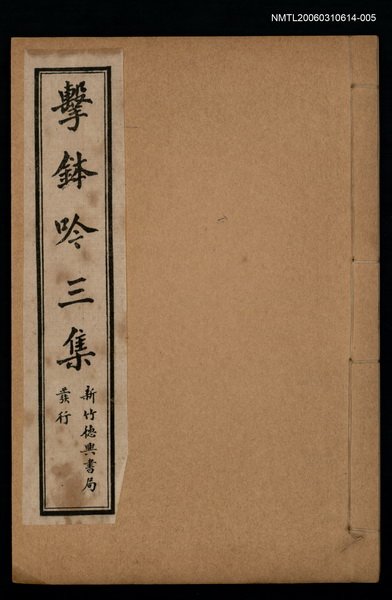 NMTL20060310614-005
擊鉢吟三集
新竹德興書局
發行